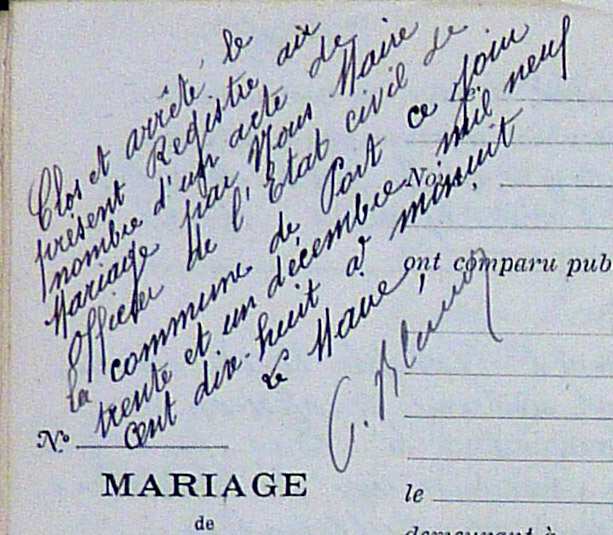 Clos et arrêté le
présent Registre au
nombre d'un acte de
Mariage par Nous Maire
Officier de l'Etat civil de
la commune de Port ce jour
trente et un décembre mil neuf
cent dix-huit à minuit
Le Maire,
No
ont comparu pub
No
MARIAGE
de
le
demeurant à